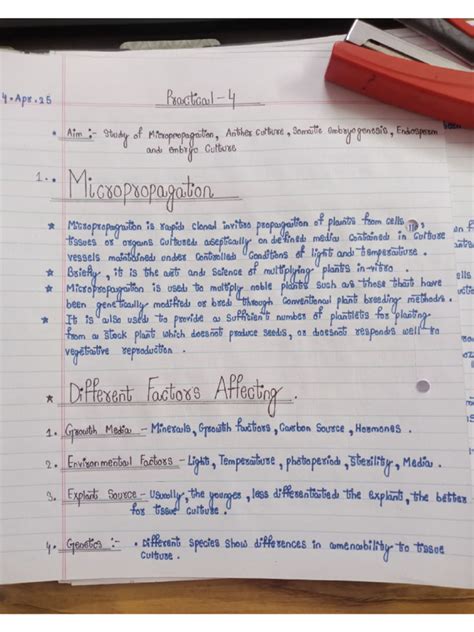 4. Apr. 25
Practical - 4
* Aim :- Study of Micropropagation, Anther culture, Somatic embryogenesis, Endosperm
and embryo Culture
1. • Micropropagation
* Micropropagation is rapid clonal invitro propagation of plants from cells,
tissues or organs cultured aseptically on defined media contained in culture
vessels maintained under controlled conditions of light and temperature.
* Briefly, it is the art and science of multiplying plants in-vitro.
* Micropropagation is used to multiply noble plants such as those that have
been genetically modified or bred through conventional plant breeding methods.
* It is also used to provide a sufficient number of plantlets for planting
from a stock plant which doesnot produce seeds, or doesnot responds well to
vegetative reproduction.
* Different Factors Affecting.
1. Growth Media - Minerals, Growth factors, Carbon Source, Hormones.
2. Environmental Factors - Light, Temperature, photoperiod, Sterility, Media.
3. Explant Source - Usually, the younger, less differentiated the explant, the better
for tissue culture.
4. Genetics :- • Different species show differences in amenability to tissue
culture.